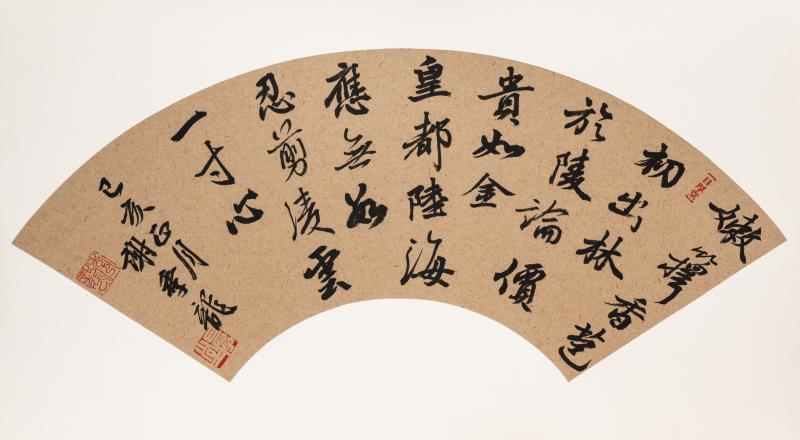 嫩籜香苞
初出林
於陵論價
貴如金
皇都陸海
應無如
忍剪淩雲
一寸心
己亥正月
謝龍